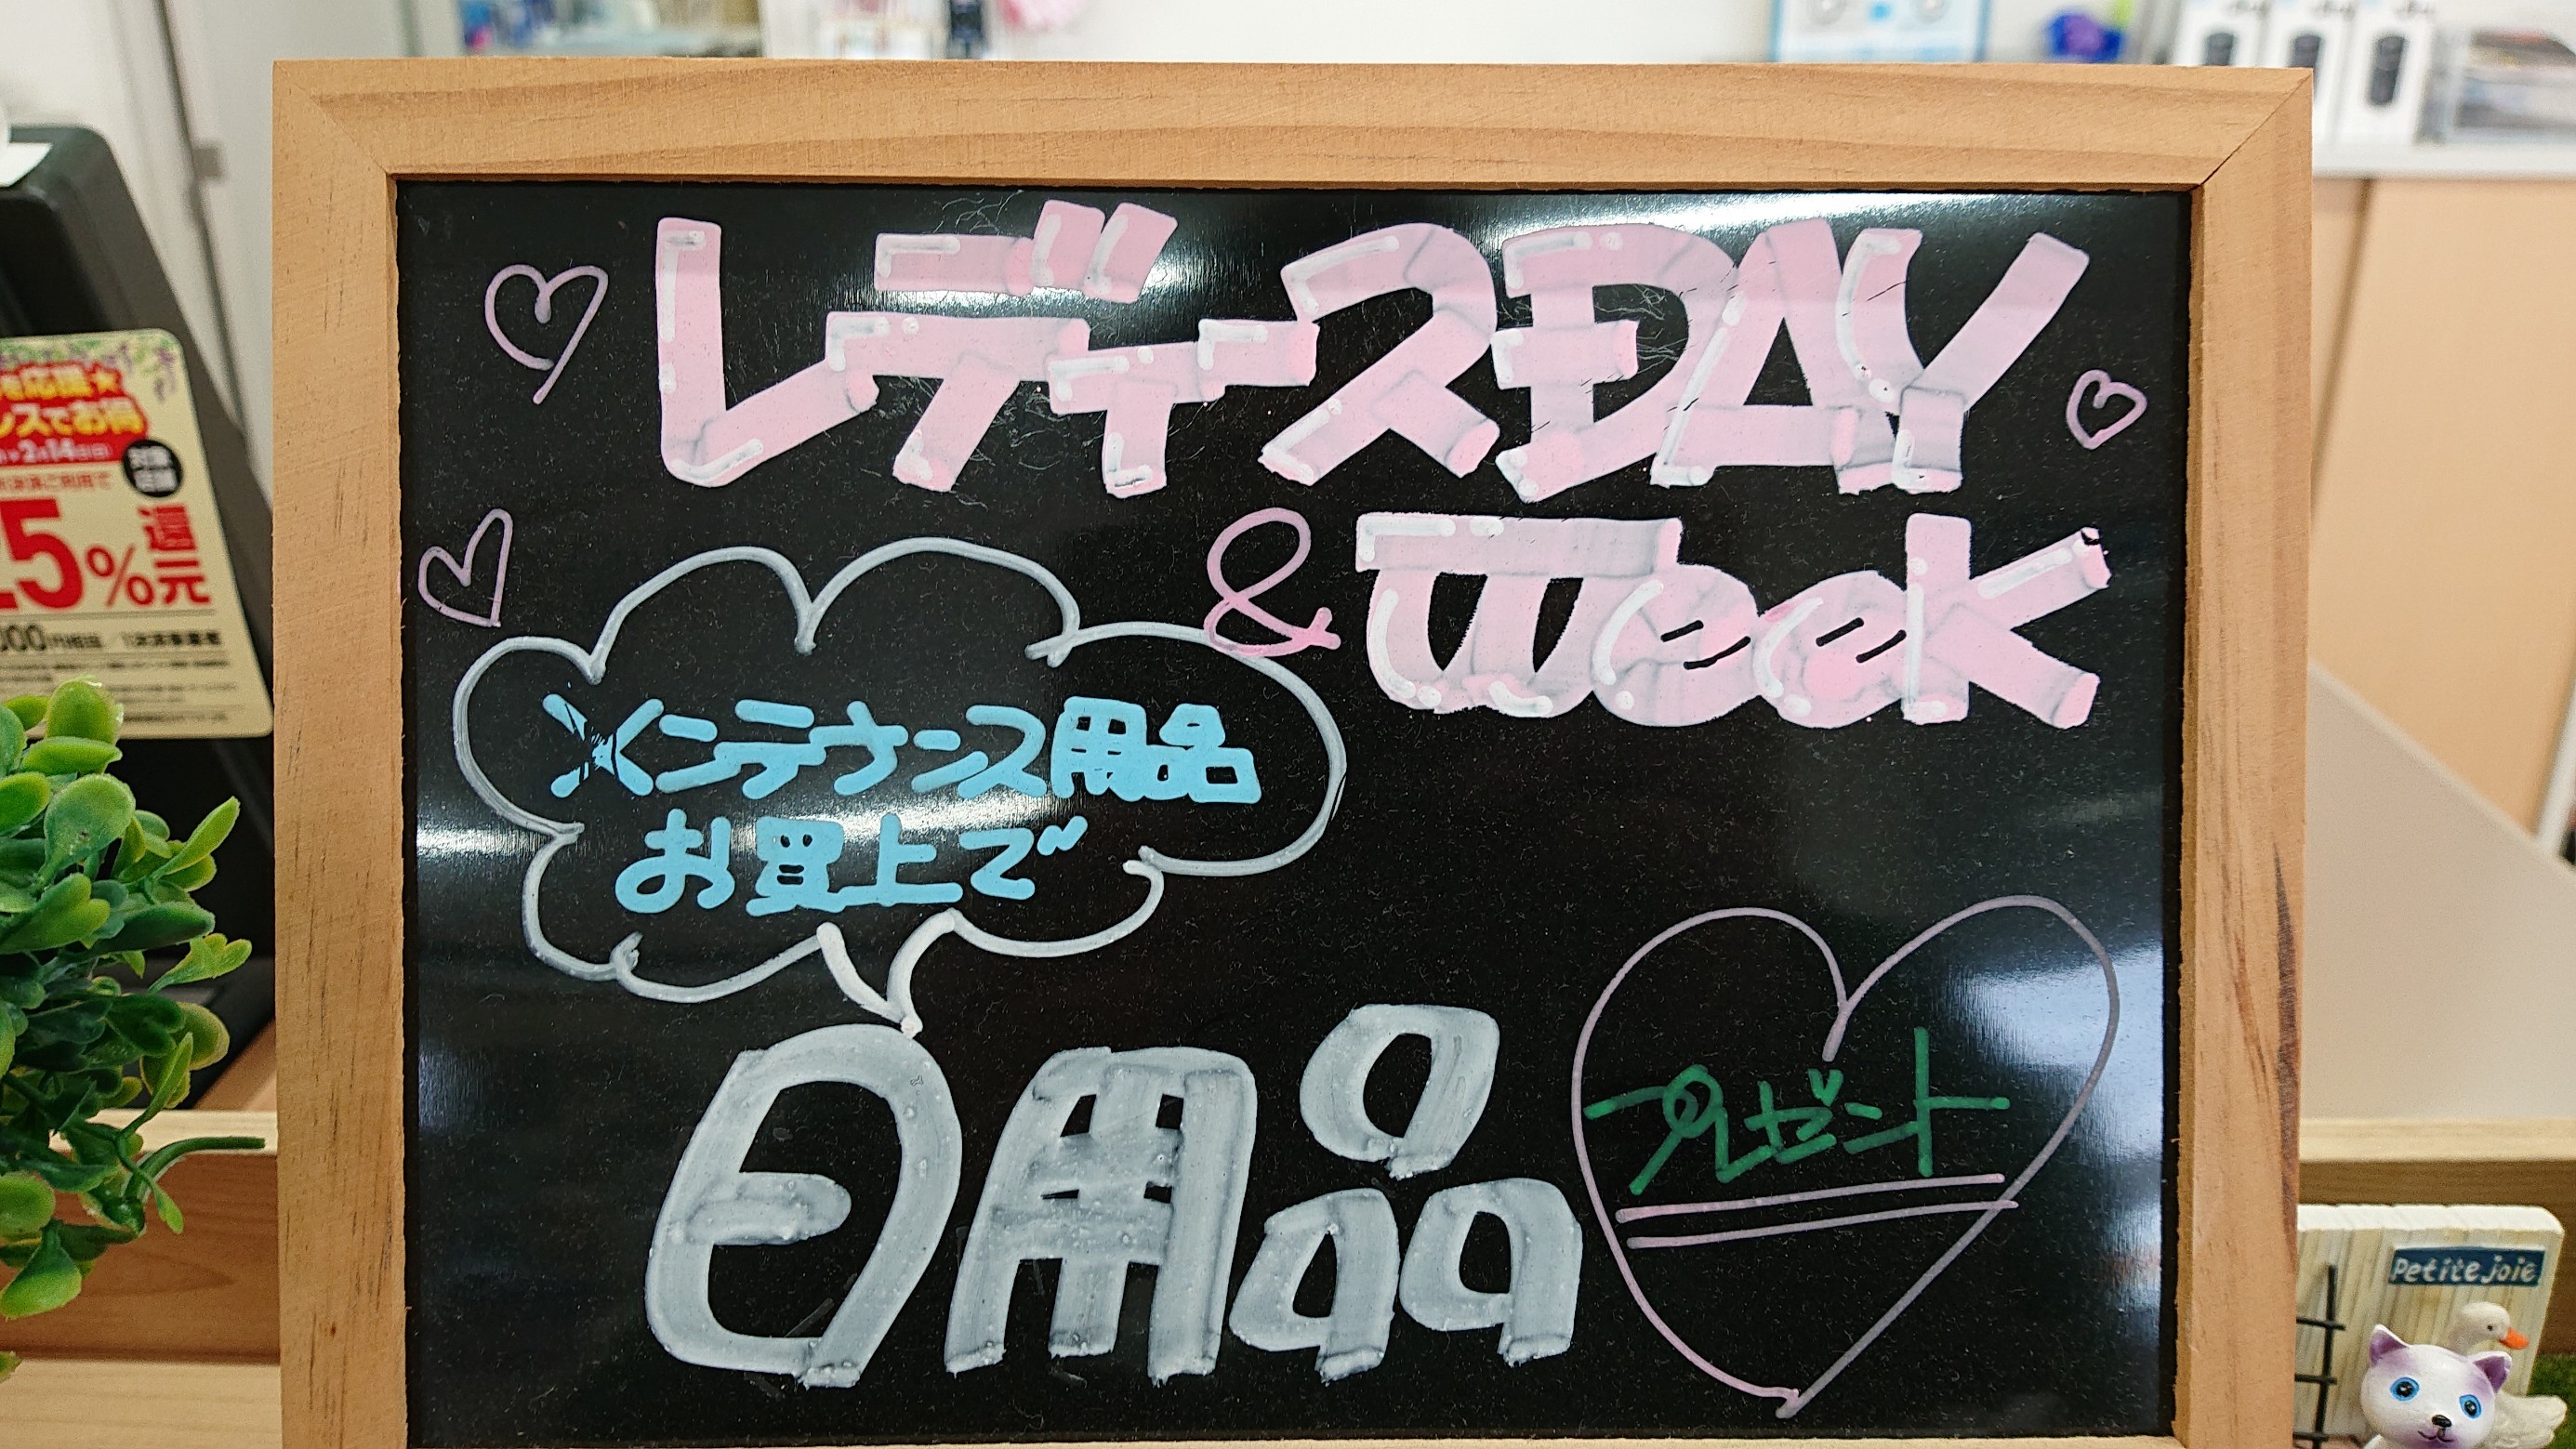 レディースDAY
& Week
メンテナンス用品
お買上で
日用品
プレゼント
応援☆
スでお得
2月14日(日)
対象
店舗
25%
還元
000円相当/1決済事業者
Petite joie